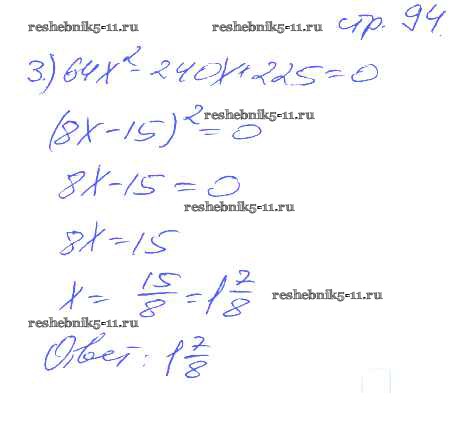 reshebnik5-11.ru reshebnik5-11.ru стр. 94
3.) 64x² - 240x + 225 = 0
reshebnik5-11.ru
(8x - 15)² = 0
8x - 15 = 0
reshebnik5-11.ru
8x = 15
x = 15/8 = 1 7/8 reshebnik5-11.ru
reshebnik5-11.ru
Ответ: 1 7/8